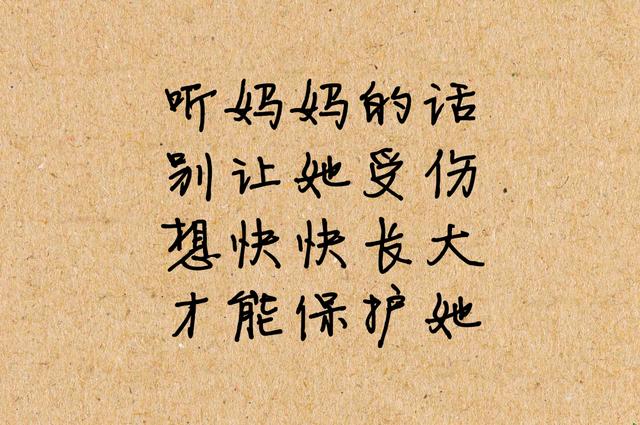 听妈妈的话
别让她受伤
想快快长大
才能保护她